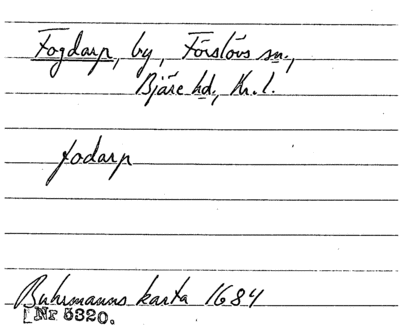 Fogdarp, by, Förslövs sn.,
Bjäre hd., Kr. l.
fodarp
Buhrmanns karta 1684
[Nr 5320.